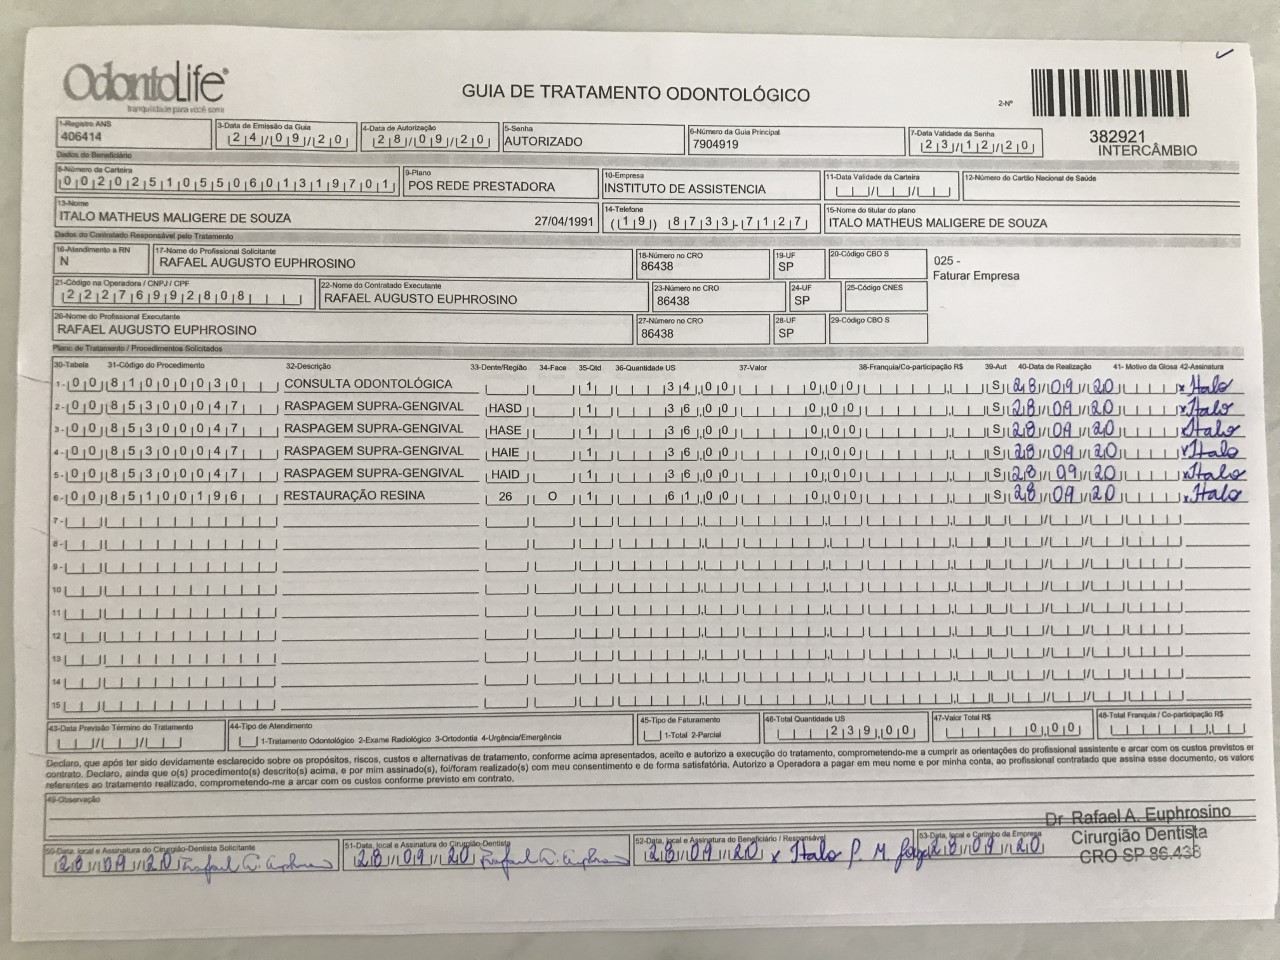 OdontoLife®
tranquilidade para você sorrir
GUIA DE TRATAMENTO ODONTOLÓGICO
2-Nº
382921
INTERCÂMBIO
1-Registro ANS
406414
3-Data de Emissão da Guia
24/09/20
4-Data de Autorização
28/09/20
5-Senha
AUTORIZADO
6-Número da Guia Principal
7904919
7-Data Validade da Senha
23/12/20
Dados do Beneficiário
8-Número da Carteira
00202510550601319701
9-Plano
POS REDE PRESTADORA
10-Empresa
INSTITUTO DE ASSISTENCIA
11-Data Validade da Carteira
12-Número do Cartão Nacional de Saúde
13-Nome
ITALO MATHEUS MALIGERE DE SOUZA 27/04/1991
14-Telefone
(19) 8733-7127
15-Nome do titular do plano
ITALO MATHEUS MALIGERE DE SOUZA
Dados do Contratado Responsável pelo Tratamento
16-Atendimento a RN
N
17-Nome do Profissional Solicitante
RAFAEL AUGUSTO EUPHROSINO
18-Número no CRO
86438
19-UF
SP
20-Código CBO S
025 -
Faturar Empresa
21-Código na Operadora / CNPJ / CPF
22276992808
22-Nome do Contratado Executante
RAFAEL AUGUSTO EUPHROSINO
23-Número no CRO
86438
24-UF
SP
25-Código CNES
26-Nome do Profissional Executante
RAFAEL AUGUSTO EUPHROSINO
27-Número no CRO
86438
28-UF
SP
29-Código CBO S
Plano de Tratamento / Procedimentos Solicitados
30-Tabela 31-Código do Procedimento 32-Descrição 33-Dente/Região 34-Face 35-Qtd 36-Quantidade US 37-Valor 38-Franquia/Co-participação R$ 39-Aut 40-Data de Realização 41- Motivo da Glosa 42-Assinatura
1- 00 81000030 CONSULTA ODONTOLÓGICA 1 34,00 0,00 S 28/09/20 x Italo
2- 00 85300047 RASPAGEM SUPRA-GENGIVAL HASD 1 36,00 0,00 S 28/09/20 x Italo
3- 00 85300047 RASPAGEM SUPRA-GENGIVAL HASE 1 36,00 0,00 S 28/09/20 x Italo
4- 00 85300047 RASPAGEM SUPRA-GENGIVAL HAIE 1 36,00 0,00 S 28/09/20 x Italo
5- 00 85300047 RASPAGEM SUPRA-GENGIVAL HAID 1 36,00 0,00 S 28/09/20 x Italo
6- 00 85100196 RESTAURAÇÃO RESINA 26 O 1 61,00 0,00 S 28/09/20 x Italo
7-
8-
9-
10
11
12
13
14
15
43-Data Previsão Término do Tratamento
44-Tipo de Atendimento
1-Tratamento Odontológico 2-Exame Radiológico 3-Ortodontia 4-Urgência/Emergência
45-Tipo de Faturamento
1-Total 2-Parcial
46-Total Quantidade US
239,00
47-Valor Total R$
0,00
48-Total Franquia / Co-participação R$
Declaro, que após ter sido devidamente esclarecido sobre os propósitos, riscos, custos e alternativas de tratamento, conforme acima apresentados, aceito e autorizo a execução do tratamento, comprometendo-me a cumprir as orientações do profissional assistente e arcar com os custos previstos em
contrato. Declaro, ainda que o(s) procedimento(s) descrito(s) acima, e por mim assinado(s), foi/foram realizado(s) com meu consentimento e de forma satisfatória. Autorizo a Operadora a pagar em meu nome e por minha conta, ao profissional contratado que assina esse documento, os valore
referentes ao tratamento realizado, comprometendo-me a arcar com os custos conforme previsto em contrato.
49-Observação
50-Data, local e Assinatura do Cirurgião-Dentista Solicitante
28/09/20
51-Data, local e Assinatura do Cirurgião-Dentista
28/09/20
52-Data, local e Assinatura do Beneficiário / Responsável
28/09/20 x Italo
53-Data, local e Carimbo da Empresa
28/09/20
Dr Rafael A. Euphrosino
Cirurgião Dentista
CRO SP 86.438